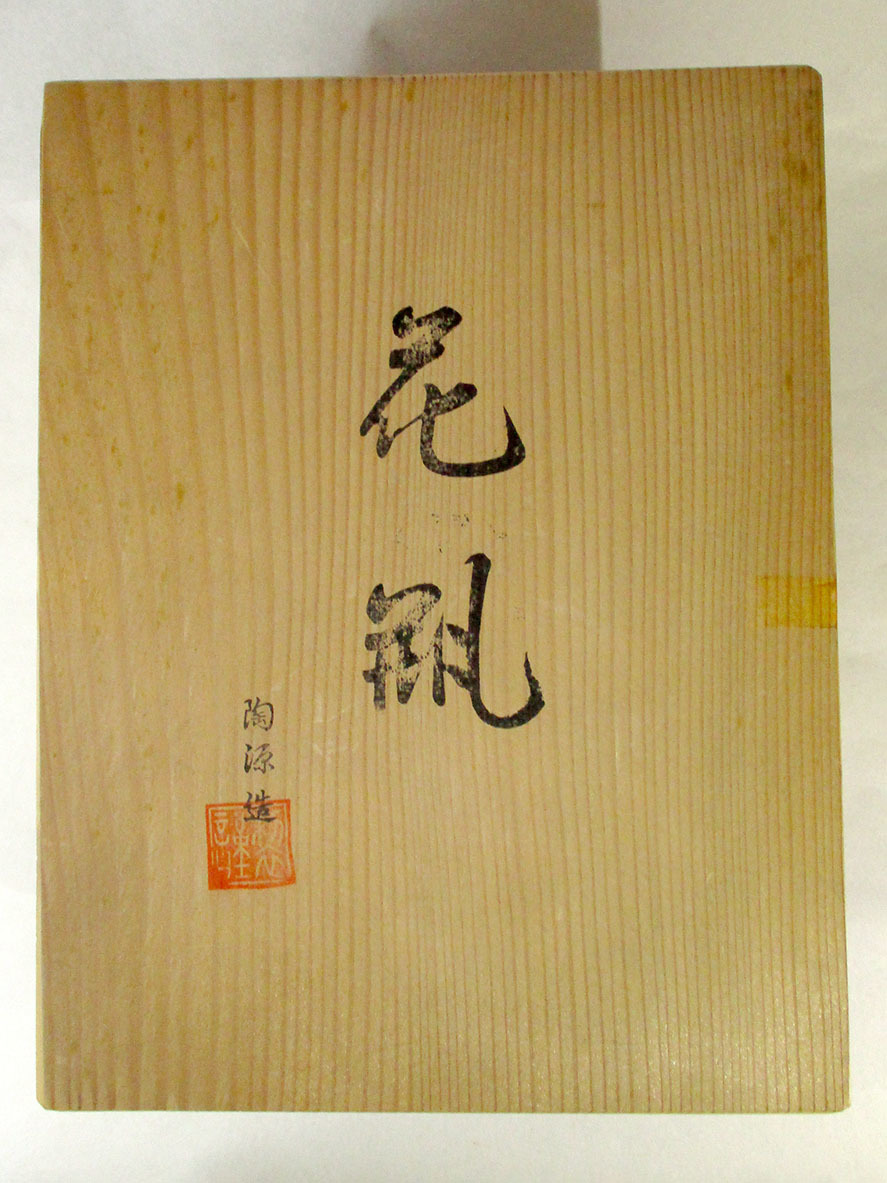 花瓶
陶源造